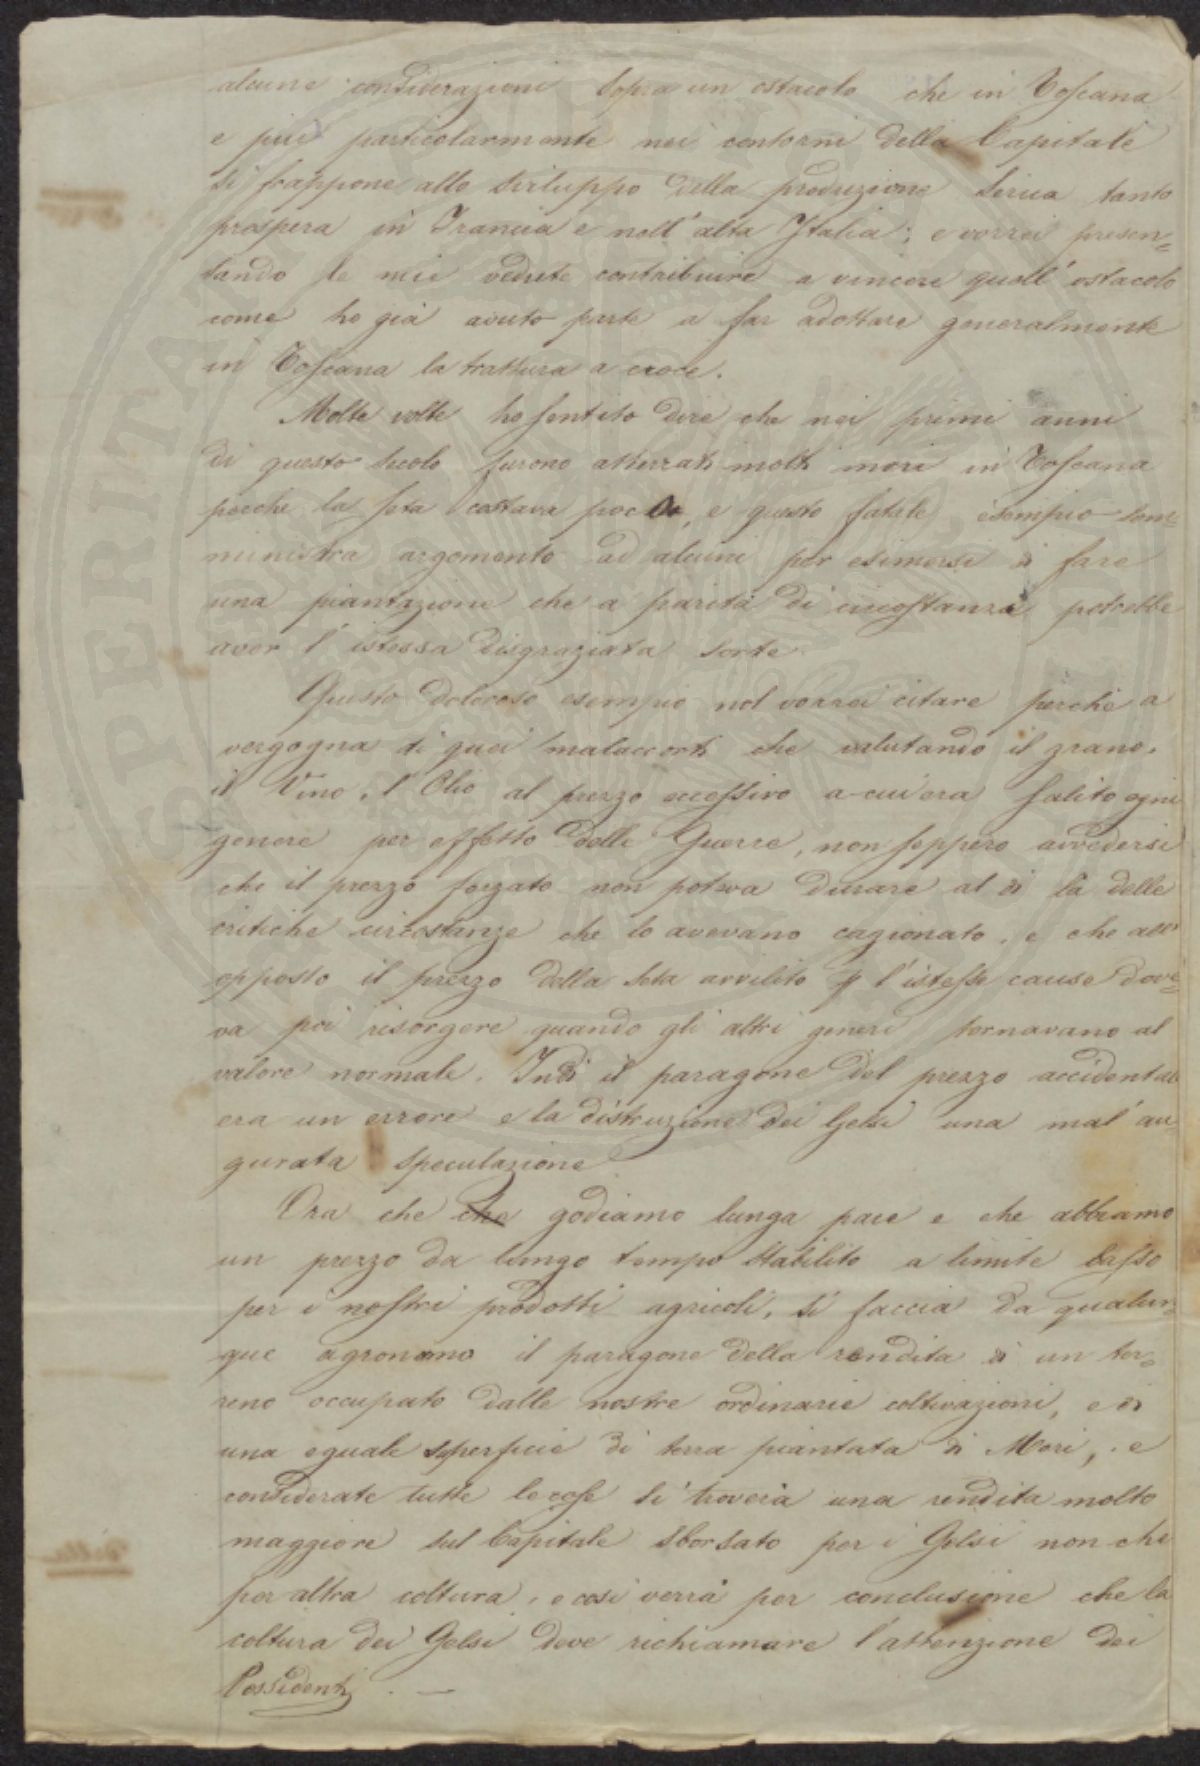 alcune considerazioni sopra un ostacolo che in Toscana
e più particolarmente nei contorni della Capitale
si frappone allo sviluppo della produzione serica tanto
prospera in Francia e nell'alta Italia; e vorrei presen=
tando le mie vedute contribuire a vincere quell'ostacolo
come ho già avuto parte a far adottare generalmente
in Toscana la trattura a croce.
Molte volte ho sentito dire che nei primi anni
di questo secolo furono atterrati molti mori in Toscana
perche la seta costava poco, e questo fatale esempio som=
ministra argomento ad alcuni per esimersi di fare
una piantazione che a parità di circostanza potrebbe
aver l'istessa disgraziata sorte.
Questo doloroso esempio nol vorrei citare perchè a
vergogna di quei malaccorti che valutando il grano,
il Vino, l'Olio al prezzo eccessivo a cui era salito ogni
genere per effetto delle Guerre, non seppero avvedersi
che il prezzo forzato non poteva durare al di là delle
critiche circostanze che lo avevano cagionato, e che all'
opposto il prezzo della seta avvilito p l'istesse cause dove=
va poi risorgere quando gli altri generi tornavano al
valore normale. Indi il paragone del prezzo accidentale
era un errore e la distruzione dei Gelsi una mal'au=
gurata speculazione
Ora che che godiamo lunga pace e che abbiamo
un prezzo da lungo tempo stabilito a limite basso
per i nostri prodotti agricoli, si faccia da qualun=
que agronomo il paragone della rendita di un ter=
reno occupato dalle nostre ordinarie coltivazioni, e di
una eguale superficie di terra piantata di Mori, e
considerate tutte le cose si troverà una rendita molto
maggiore sul Capitale sborsato per i Gelsi non che
per altra coltura, e così verrà per conclusione che la
coltura dei Gelsi deve richiamare l'attenzione dei
Possidenti. —
SPERITAT
della